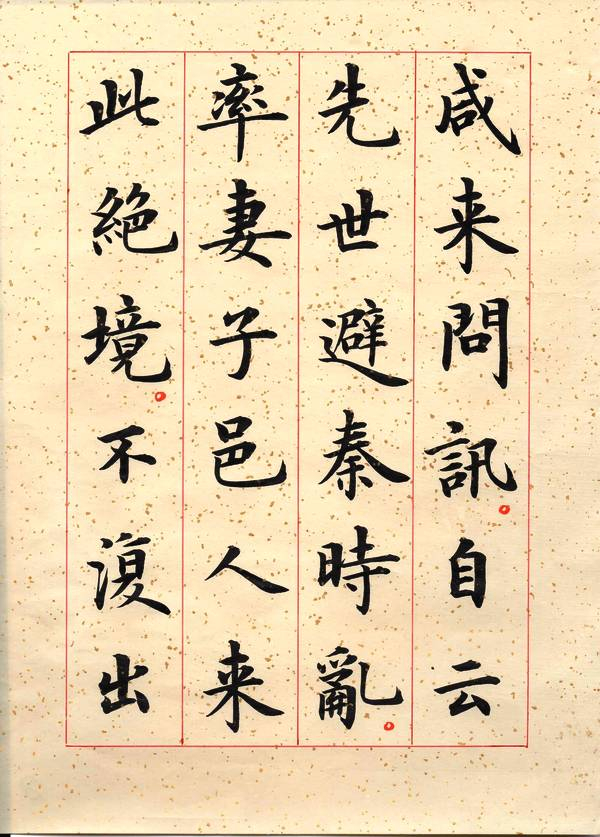 咸来問訊。自云
先世避秦時亂。
率妻子邑人来
此絶境。不復出